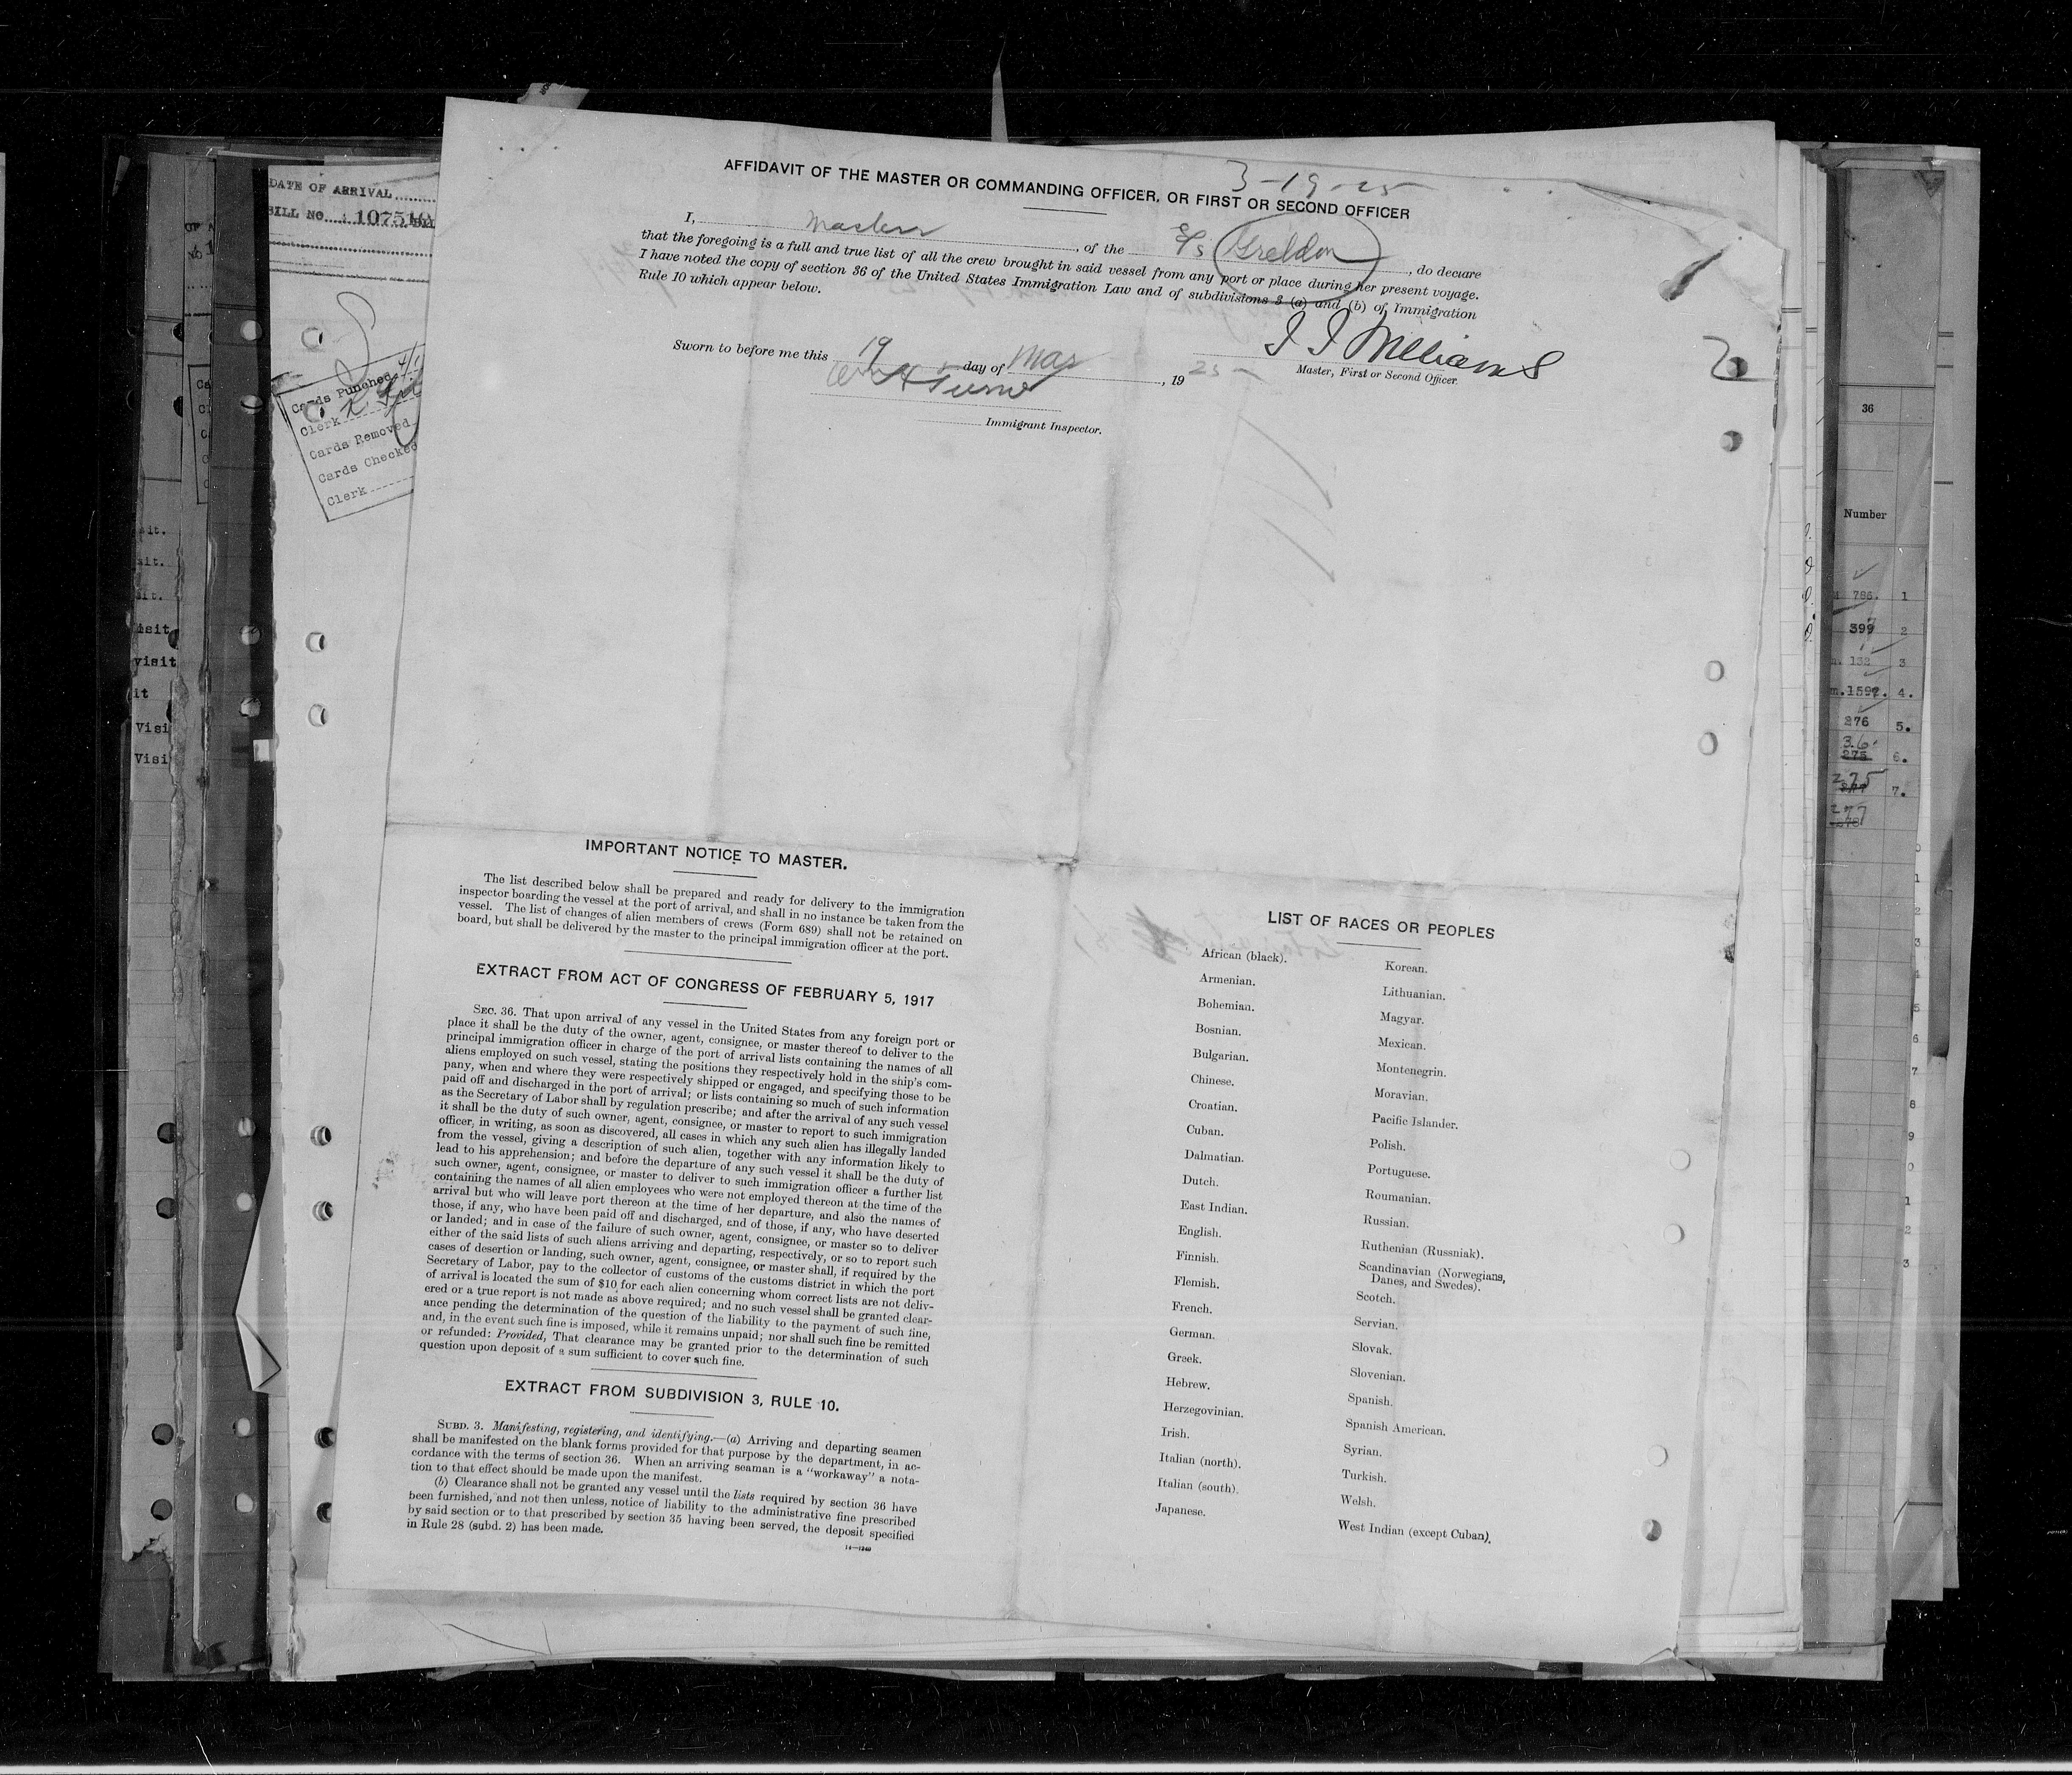 3-19-25
AFFIDAVIT OF THE MASTER OR COMMANDING OFFICER, OR FIRST OR SECOND OFFICER
I, Master, of the S/S Greldon, do declare
that the foregoing is a full and true list of all the crew brought in said vessel from any port or place during her present voyage.
I have noted the copy of section 36 of the United States Immigration Law and of subdivisions 3 (a) and (b) of Immigration
Rule 10 which appear below.
J J Williams
Master, First or Second Officer.
Sworn to before me this 19 day of Mar, 19 25
Turner
Immigrant Inspector.
IMPORTANT NOTICE TO MASTER.
The list described below shall be prepared and ready for delivery to the immigration
inspector boarding the vessel at the port of arrival, and shall in no instance be taken from the
vessel. The list of changes of alien members of crews (Form 689) shall not be retained on
board, but shall be delivered by the master to the principal immigration officer at the port.
EXTRACT FROM ACT OF CONGRESS OF FEBRUARY 5, 1917
SEC. 36. That upon arrival of any vessel in the United States from any foreign port or
place it shall be the duty of the owner, agent, consignee, or master thereof to deliver to the
principal immigration officer in charge of the port of arrival lists containing the names of all
aliens employed on such vessel, stating the positions they respectively hold in the ship's com-
pany, when and where they were respectively shipped or engaged, and specifying those to be
paid off and discharged in the port of arrival; or lists containing so much of such information
as the Secretary of Labor shall by regulation prescribe; and after the arrival of any such vessel
it shall be the duty of such owner, agent, consignee, or master to report to such immigration
officer, in writing, as soon as discovered, all cases in which any such alien has illegally landed
from the vessel, giving a description of such alien, together with any information likely to
lead to his apprehension; and before the departure of any such vessel it shall be the duty of
such owner, agent, consignee, or master to deliver to such immigration officer a further list
containing the names of all alien employees who were not employed thereon at the time of the
arrival but who will leave port thereon at the time of her departure, and also the names of
those, if any, who have been paid off and discharged, and of those, if any, who have deserted
or landed; and in case of the failure of such owner, agent, consignee, or master so to deliver
either of the said lists of such aliens arriving and departing, respectively, or so to report such
cases of desertion or landing, such owner, agent, consignee, or master shall, if required by the
Secretary of Labor, pay to the collector of customs of the customs district in which the port
of arrival is located the sum of $10 for each alien concerning whom correct lists are not deliv-
ered or a true report is not made as above required; and no such vessel shall be granted clear-
ance pending the determination of the question of the liability to the payment of such fine,
and, in the event such fine is imposed, while it remains unpaid; nor shall such fine be remitted
or refunded: Provided, That clearance may be granted prior to the determination of such
question upon deposit of a sum sufficient to cover such fine.
EXTRACT FROM SUBDIVISION 3, RULE 10.
SUBD. 3. Manifesting, registering, and identifying.—(a) Arriving and departing seamen
shall be manifested on the blank forms provided for that purpose by the department, in ac-
cordance with the terms of section 36. When an arriving seaman is a "workaway" a nota-
tion to that effect should be made upon the manifest.
(b) Clearance shall not be granted any vessel until the lists required by section 36 have
been furnished, and not then unless, notice of liability to the administrative fine prescribed
by said section or to that prescribed by section 35 having been served, the deposit specified
in Rule 28 (subd. 2) has been made.
14—1240
LIST OF RACES OR PEOPLES
African (black).
Armenian.
Bohemian.
Bosnian.
Bulgarian.
Chinese.
Croatian.
Cuban.
Dalmatian.
Dutch.
East Indian.
English.
Finnish.
Flemish.
French.
German.
Greek.
Hebrew.
Herzegovinian.
Irish.
Italian (north).
Italian (south).
Japanese.
Korean.
Lithuanian.
Magyar.
Mexican.
Montenegrin.
Moravian.
Pacific Islander.
Polish.
Portuguese.
Roumanian.
Russian.
Ruthenian (Russniak).
Scandinavian (Norwegians,
Danes, and Swedes).
Scotch.
Servian.
Slovak.
Slovenian.
Spanish.
Spanish American.
Syrian.
Turkish.
Welsh.
West Indian (except Cuban).
DATE OF ARRIVAL
BILL NO. 10751
Cards Punched
Clerk
Cards Removed
Cards Checked
Clerk
sit.
sit.
visit
it
Visi
Visi
36
Number
786. 1
399 2
132 3
1592. 4.
276 5.
36
275 6.
275
277 7.
277
278